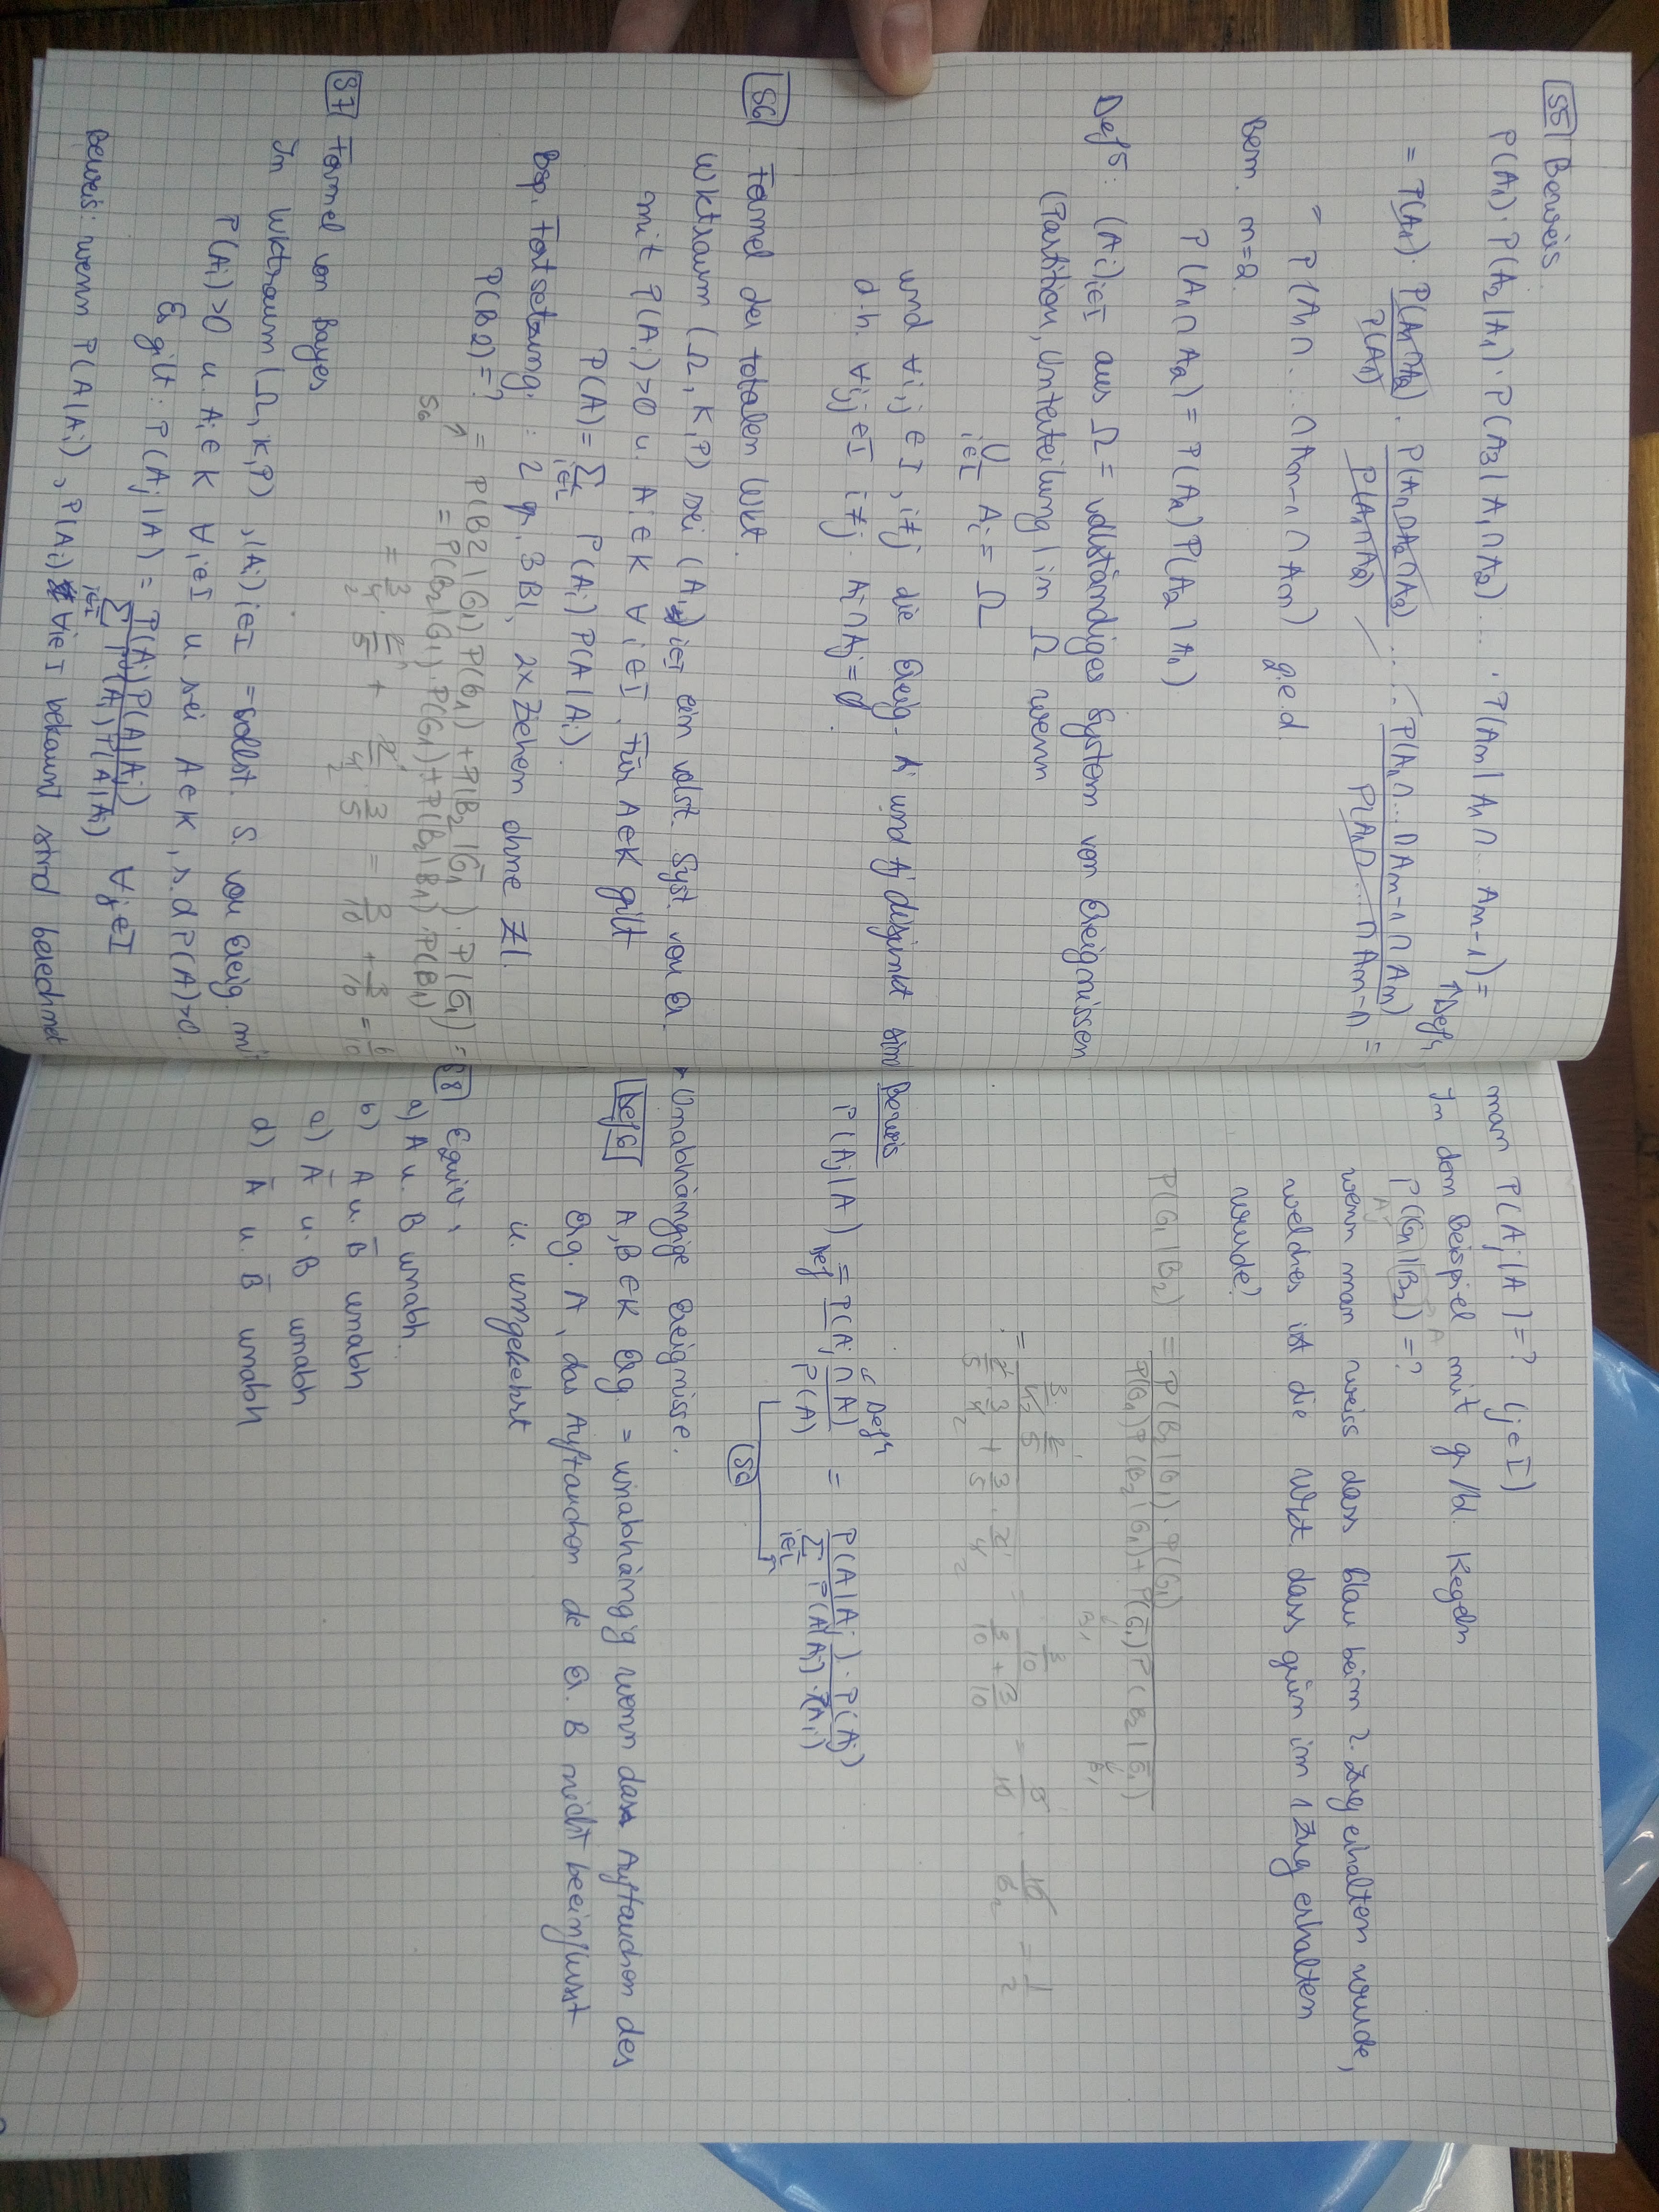 S5 Beweis.
P(A₁)·P(A₂|A₁)·P(A₃|A₁∩A₂) ... ·P(Am|A₁∩...Am-1)=
↑Def4
= P(A₁)· P(A₁∩A₂)/P(A₁) · P(A₁∩A₂∩A₃)/P(A₁∩A₂) ... P(A₁∩...∩Am-1∩Am)/P(A₁∩...∩Am-1) =
= P(A₁∩...∩Am-1∩Am) q.e.d.
Bem. m=2.
P(A₁∩A₂)=P(A₁)P(A₂|A₁)
Def5: (Ai)i∈I aus Ω = vollständiges System von Ereignissen
(Partition, Unterteilung) in Ω wenn
∪ Ai = Ω
i∈I
und ∀i,j∈I, i≠j die Ereig. Ai und Aj disjunkt sind
d.h. ∀i,j∈I i≠j. Ai∩Aj=∅.
S6 Formel der totalen Wkt.
Wktraum (Ω,K,P) sei (Ai)i∈I ein volst. Syst. von Er.
mit P(Ai)>0 u. Ai∈K ∀i∈I. Für A∈K gilt
P(A)= Σ P(Ai)P(A|Ai).
i∈I
Bsp. Fortsetzung: 2 gr. 3Bl, 2x Ziehen ohne Zl.
P(B2)=? = P(B2|G₁)P(G₁)+P(B₂|G̅₁)·P(G̅₁)=
S6 ↑ = P(B₂|G₁)·P(G₁)+P(B₂|B₁)·P(B₁)
= 3/4 · 2/5 + 2/4 · 3/5 = 3/10 + 3/10 = 6/10
S7 Formel von Bayes
In Wktraum (Ω,K,P), (Ai)i∈I = vollst. S. von Ereig. mit
P(Ai)>0 u. Ai∈K ∀i∈I u. sei A∈K, s.d P(A)>0.
Es gilt: P(Aj|A) = P(Aj)P(A|Aj) / Σ i∈I P(Ai)P(A|Ai) ∀j∈I
Beweis: wenn P(A|Ai), P(Ai) ∀i∈I bekannt sind berechnet
man P(Aj|A)=? (j∈I)
In dem Beispiel mit gr/bl. Kegeln
P(G₁|B₂)=?
A
Aj
wenn man weiss dass blau beim 2. Zug erhalten wurde,
welches ist die Wkt. dass grün im 1 Zug erhalten
wurde?
P(G₁|B₂) = P(B₂|G₁)·P(G₁) / P(G₁)P(B₂|G₁)+P(G̅₁)P(B₂|G̅₁)
B₁ B₁
= (3/4 · 2/5) / (2/5 · 3/4 + 3/5 · 2/4) = (3/10) / (3/10 + 3/10) = 3/10 · 10/6 = 1/2
Beweis
↙ Def4
P(Aj|A) = Def P(Aj∩A)/P(A) = P(A|Aj)·P(Aj) / Σ i∈I P(A|Ai)·P(Ai)
S6
Unabhängige Ereignisse.
Def6 A,B∈K Erg. = unabhängig wenn das Auftauchen des
Erg. A, das Auftauchen de Er. B nicht beeinflusst
u. umgekehrt
S8 Equiv:
a) A u. B unabh.
b) A u. B̅ unabh
c) A̅ u. B unabh
d) A̅ u. B̅ unabh